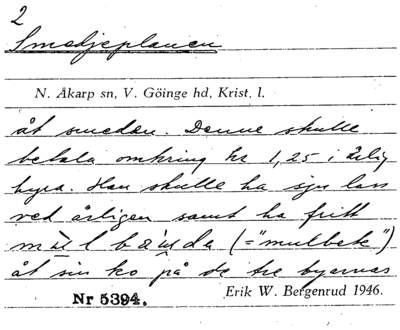 2
Smedjeplanen
N. Åkarp sn, V. Göinge hd, Krist. l.
åt smeden. Denne skulle
betala omkring kr 1,25 i årlig
hyra. Han skulle ha sju lass
ved årligen samt ha fritt
(="mulbete")
åt sin ko på de tre byarnas
Nr 5394. Erik W. Bergenrud 1946.